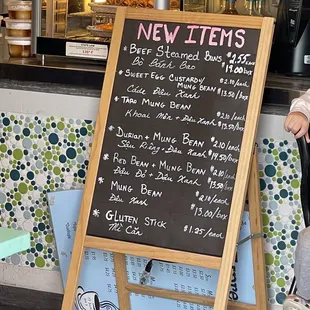 NEW ITEMS
* Beef Steamed Buns $2.55
Bò Bích Bao 14.00/box
* Sweet Egg Custard/ $2.10/each
Mung Bean $13.50/box
Cade Đậu Xanh
* Taro Mung Bean
Khoai Môn + Đậu Xanh $2.10/each
$13.50/box
* Durian + Mung Bean $2.10/each
Sầu Riêng + Đậu Xanh $13.50/box
* Red Bean + Mung Bean $2.10/each
Đậu Đỏ + Đậu Xanh $13.50/box
* Mung Bean $2.10/each
Đậu Xanh $13.00/box
* Gluten Stick
Mì Căn $1.25/each